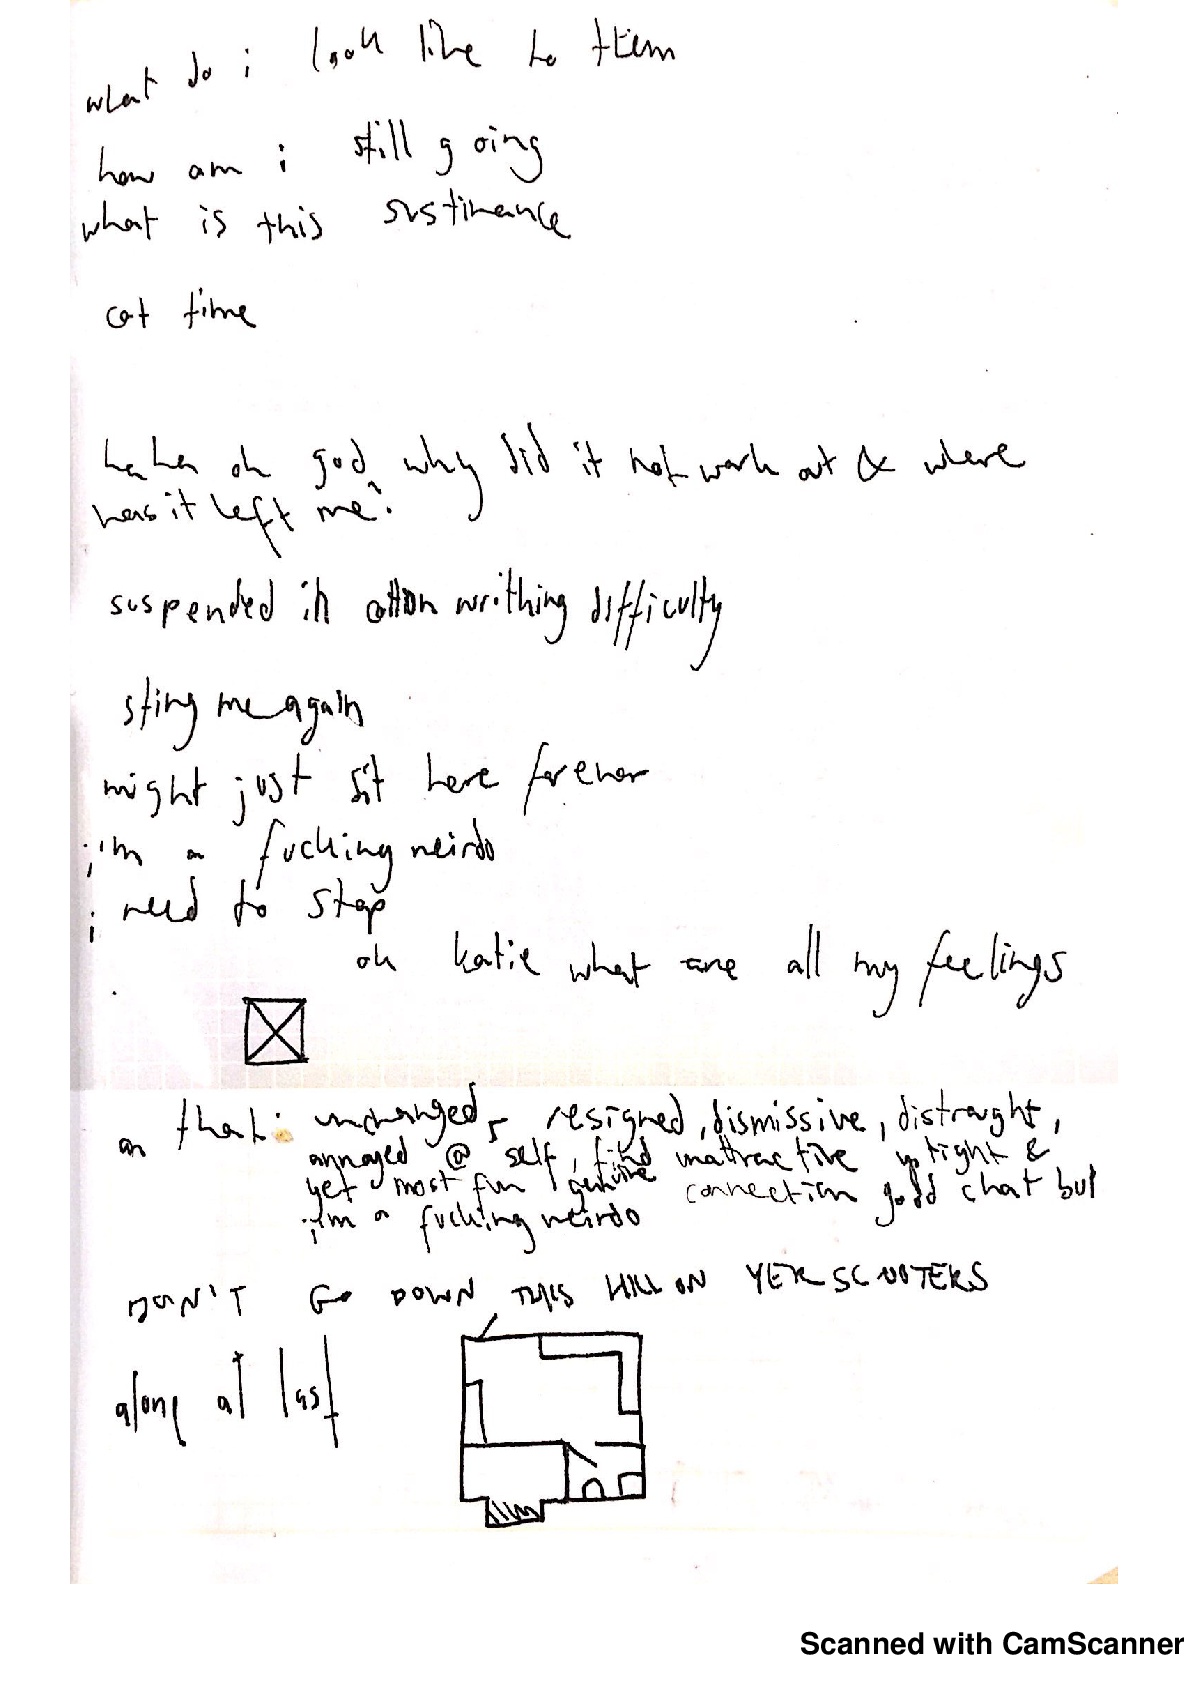 what do i look like to them
how am i still going
what is this sustinance
cat time
haha oh god why did it not work out & where
has it left me?
suspended in cotton writhing difficulty
sting me again
might just sit here forever
i'm a fucking weirdo
i need to stop
oh katie what are all my feelings
on that: unchanged, resigned, dismissive, distraught,
annoyed @ self, find inattractive uptight &
yet most fun genuine connection good chat but
i'm a fucking weirdo
DON'T GO DOWN THIS HILL ON YER SCOOTERS
along at last
Scanned with CamScanner